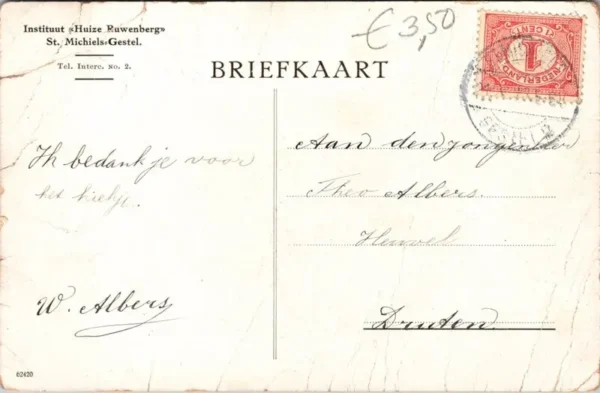 Instituut »Huize Ruwenberg»
St. Michiels-Gestel.
Tel. Interc. No. 2.
€ 3,50
BRIEFKAART
NEDERLAND
1
1 CENT
Ik bedank je voor
het kiekje.
W. Albers
Aan den jongenheer
Theo Albers.
Heuvel
Druten.
62420